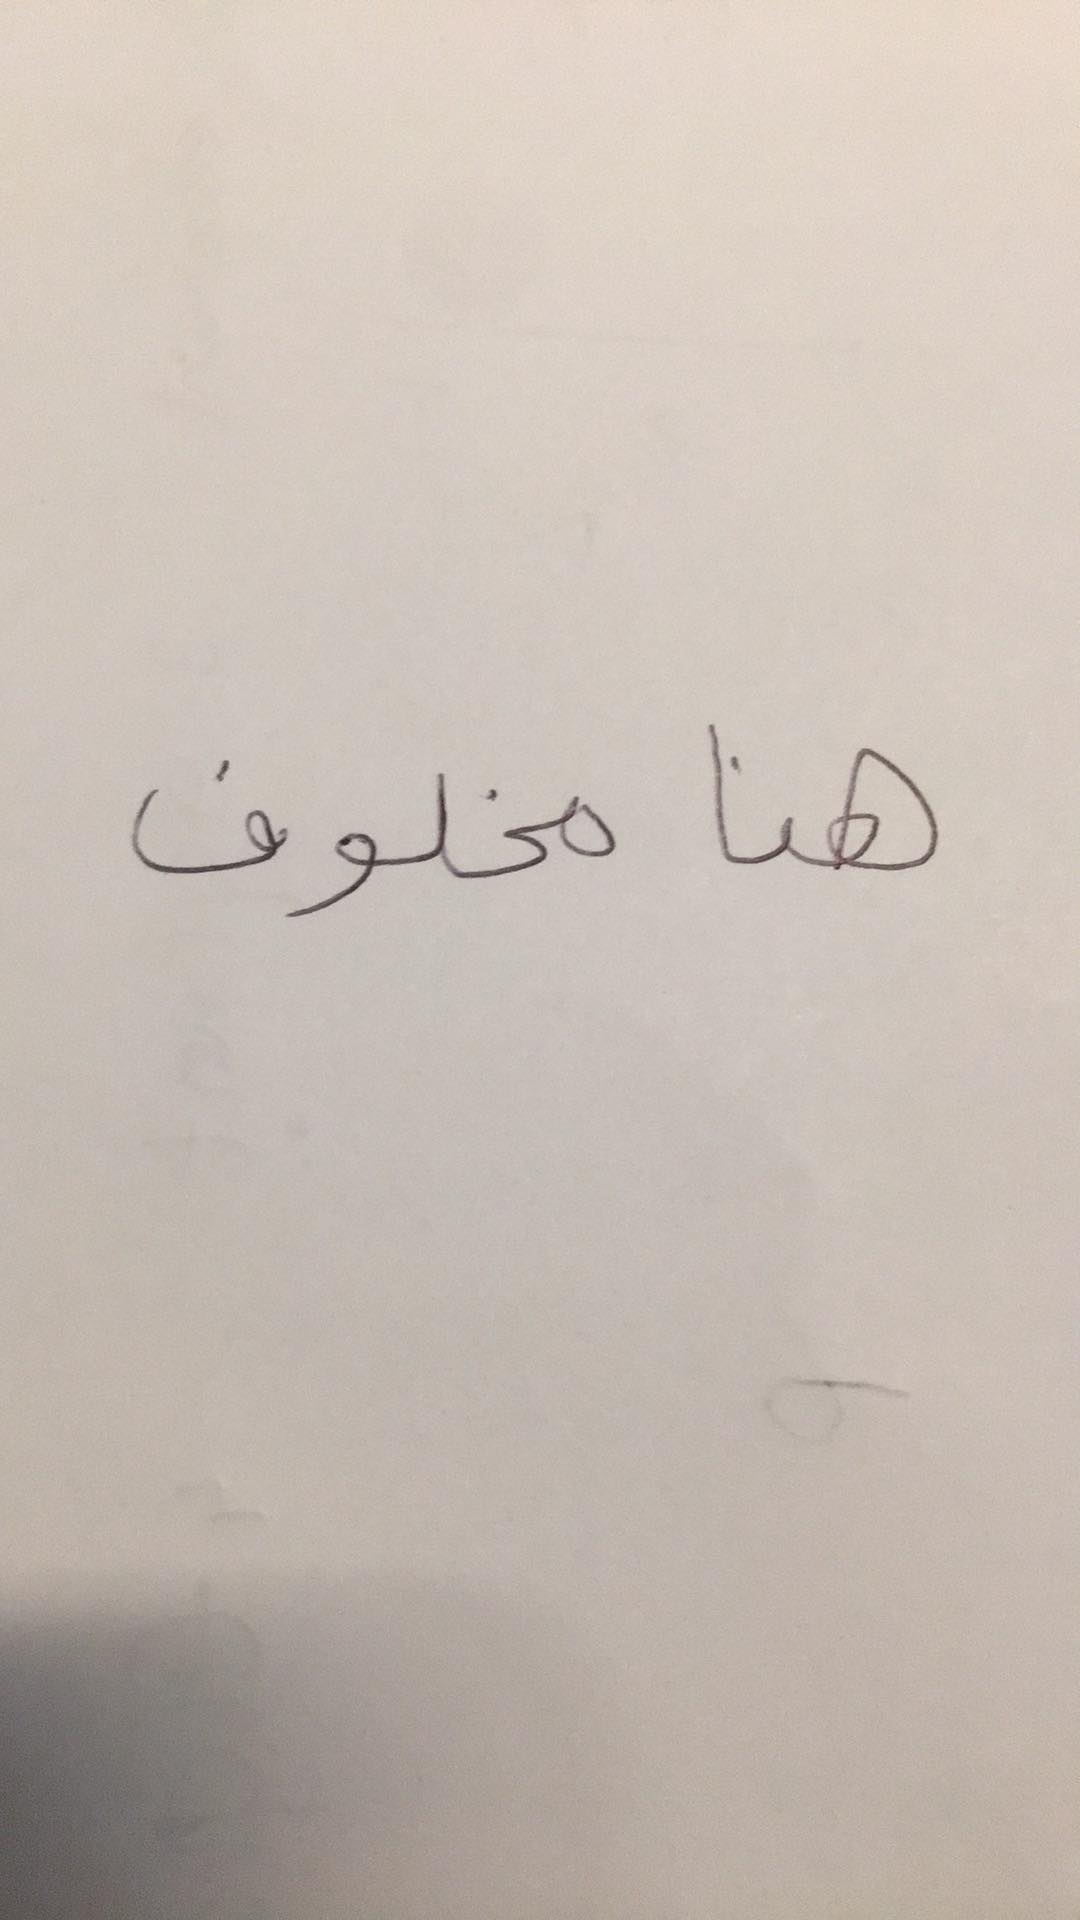 هنا مخلوف